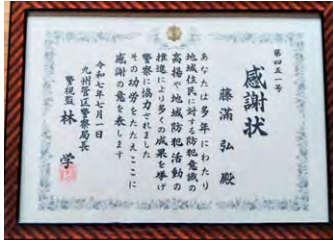 第四五一号
感謝状
藤満 弘 殿
あなたは多年にわたり
地域住民に対する防犯意識の
高揚や地域防犯活動の
推進により多くの成果を挙げ
警察に協力されました
その功労をたたえここに
感謝の意を表します
令和七年七月一日
九州管区警察局長
警視監 林 学